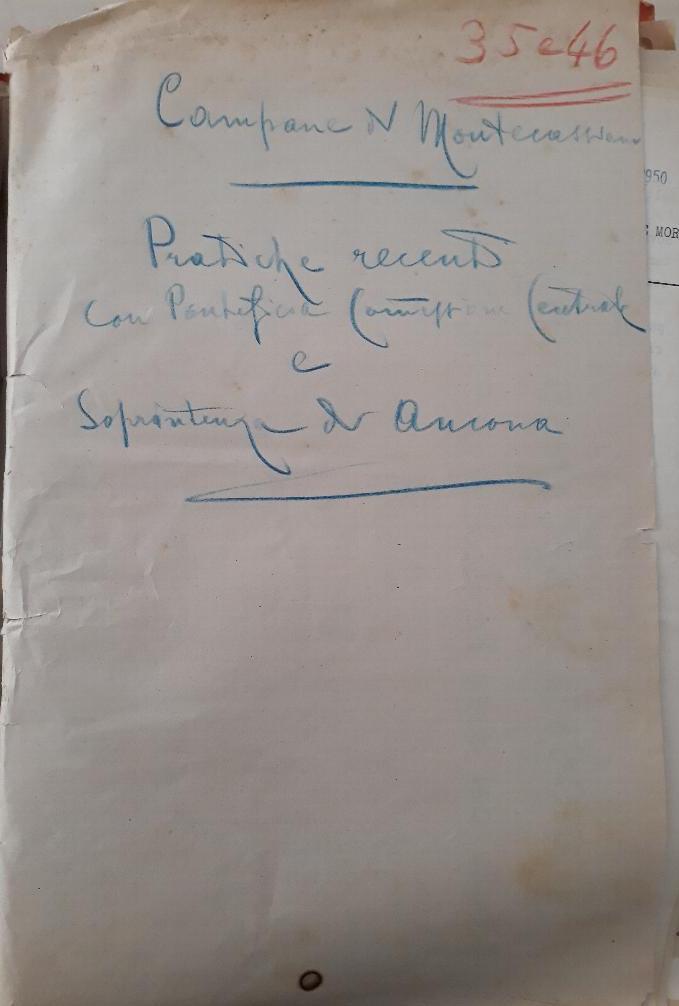 35 e 46
Campane di Montecassiano
950
MOR
Pratiche recenti
con Pontificia Commissione Centrale
e
Soprintenza di Ancona